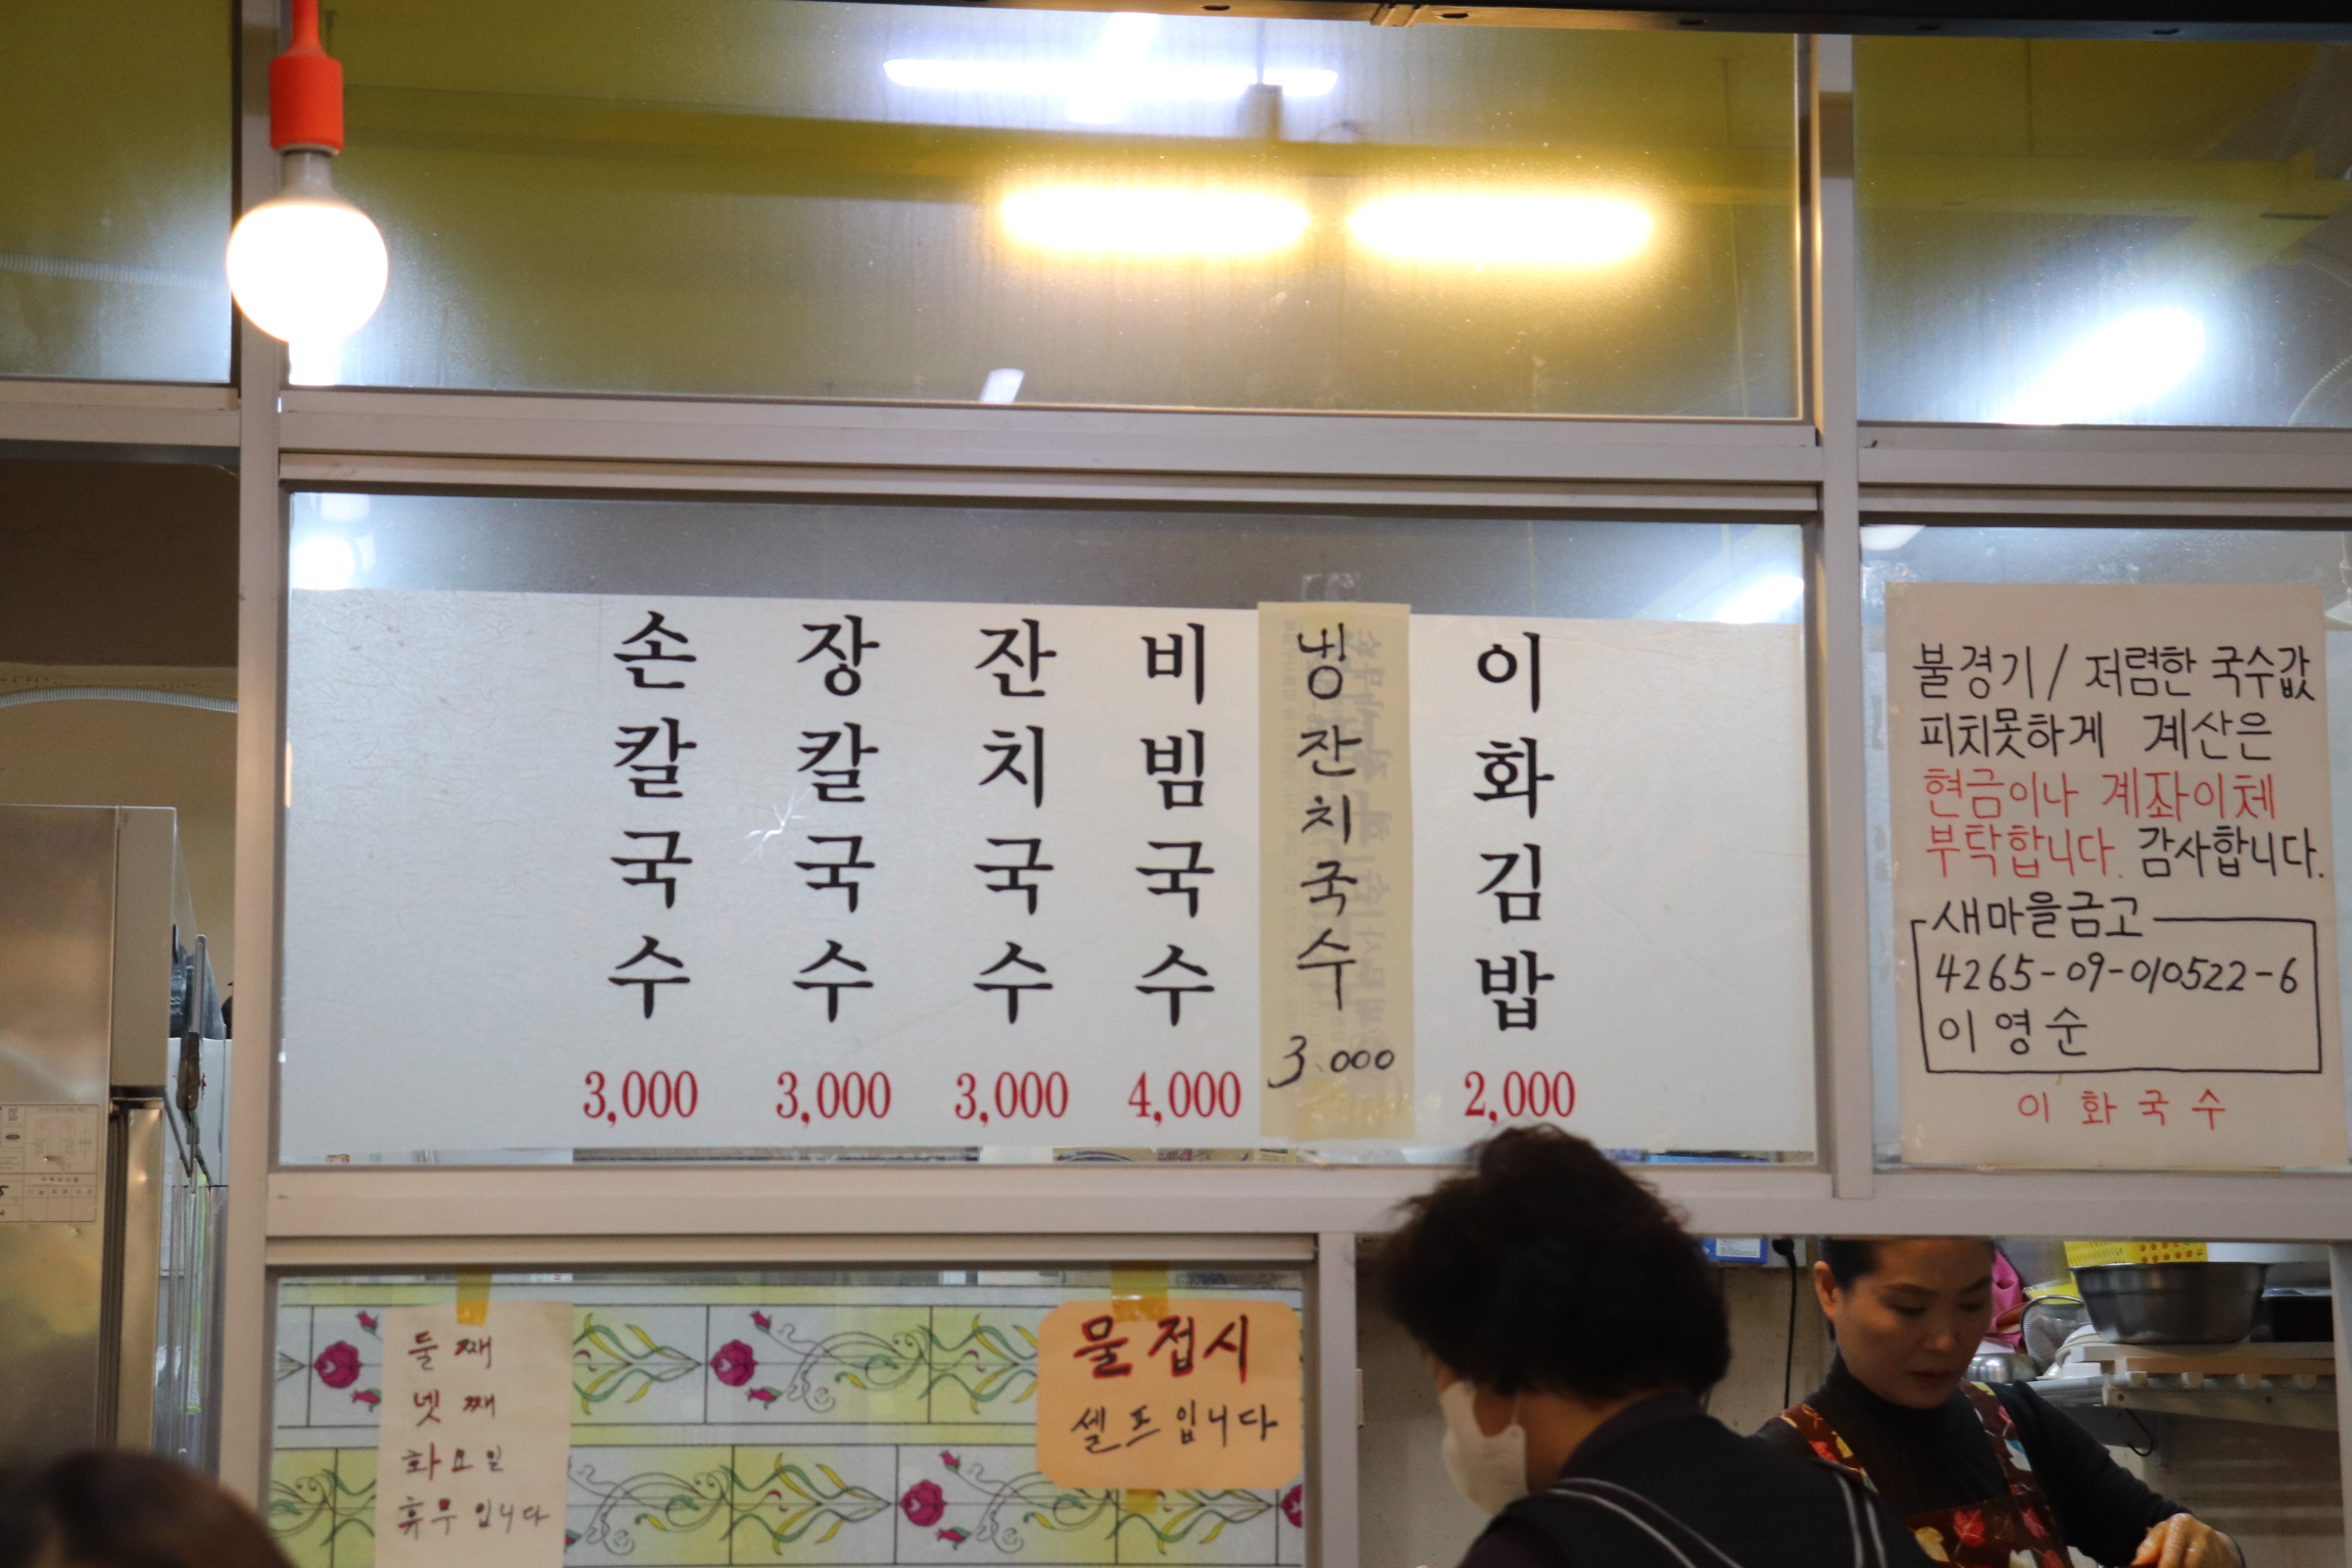 손칼국수
3,000
장칼국수
3,000
잔치국수
3,000
비빔국수
4,000
냉잔치국수
3.000
이화김밥
2,000
불경기/ 저렴한 국수값
피치못하게 계산은
현금이나 계좌이체
부탁합니다. 감사합니다.
새마을금고
4265-09-010522-6
이영순
이화국수
둘째
넷째
화요일
휴무입니다
물 접시
셀프입니다